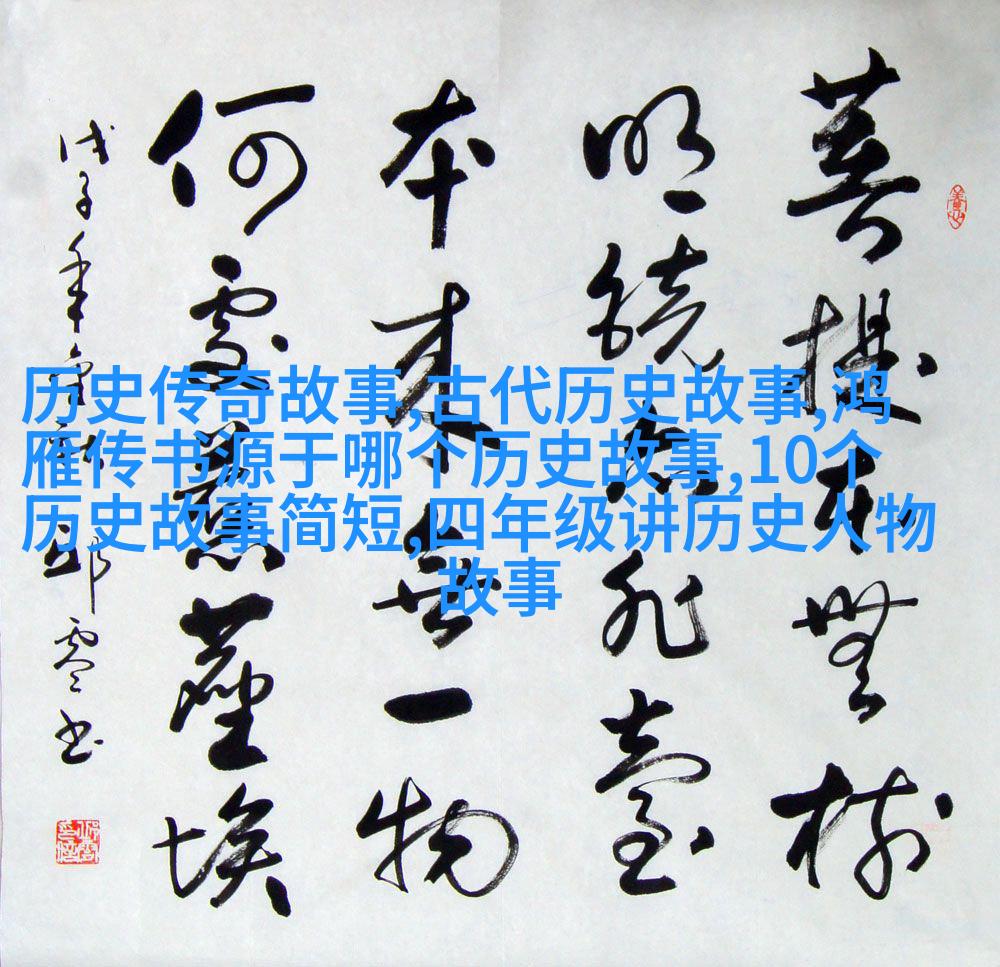 菩提本無樹
明镜亦非臺
本来無一物
何處惹塵埃
戊子年
邱零书
历史传奇故事,古代历史故事,鸿
雁传书源于哪个历史故事,10个
历史故事简短,四年级讲历史人物
故事